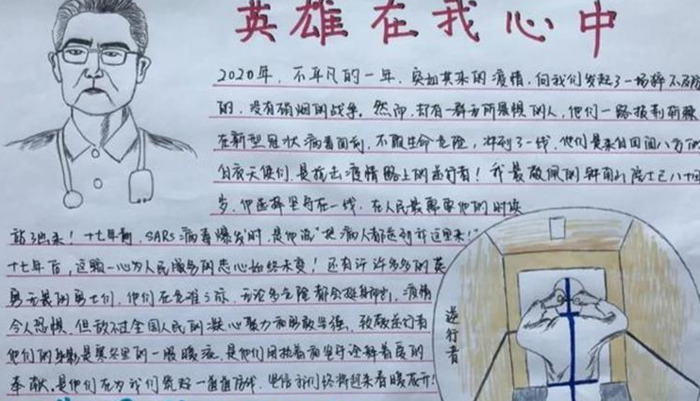 英雄在我心中
2020年，不平凡的一年，突如其来的疫情，向我们发起了一场猝不及防
的，没有硝烟的战争。然而，却有一群无所畏惧的人，他们一路披荆斩棘
在新型冠状病毒面前，不顾生命危险，冲到了一线，他们是来自四面八方的
白衣天使们，是抗击疫情路上的逆行者！我最敬佩的钟南山院士已八十四
岁，他选择坚守在一线，在人民最需要他们的时候
站了出来！十七年前，SARS病毒爆发时，是他说“把病人都送到我这里来！”
十七年后，这颗一心为人民服务的忠心始终未变！还有许许多多的英
勇无畏的勇士们，他们在危难之际，无论多危险都会挺身而出，疫情
令人恐惧，但敌不过全国人民的凝心聚力和勇敢坚强，致敬逆行者
他们的身影是寒冬里的一股暖流，是他们用执着和坚守诠释着爱的
奉献，是他们在为我们筑起一道道防线，坚信我们终将迎来春暖花开！
逆行者